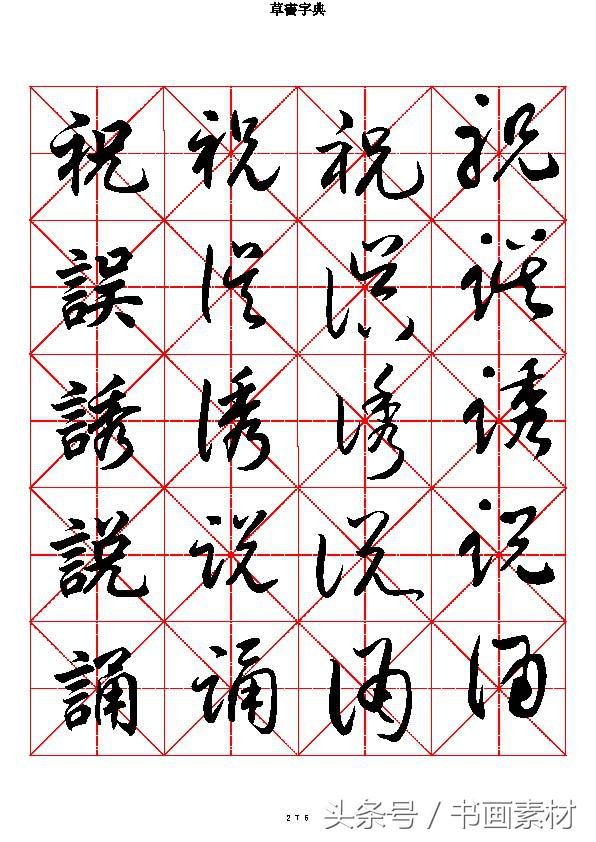 草書字典
祝 祝 祝 祝
誤 误 误 误
誘 诱 诱 诱
說 说 说 说
誦 诵 诵 诵
276
头条号 / 书画素材